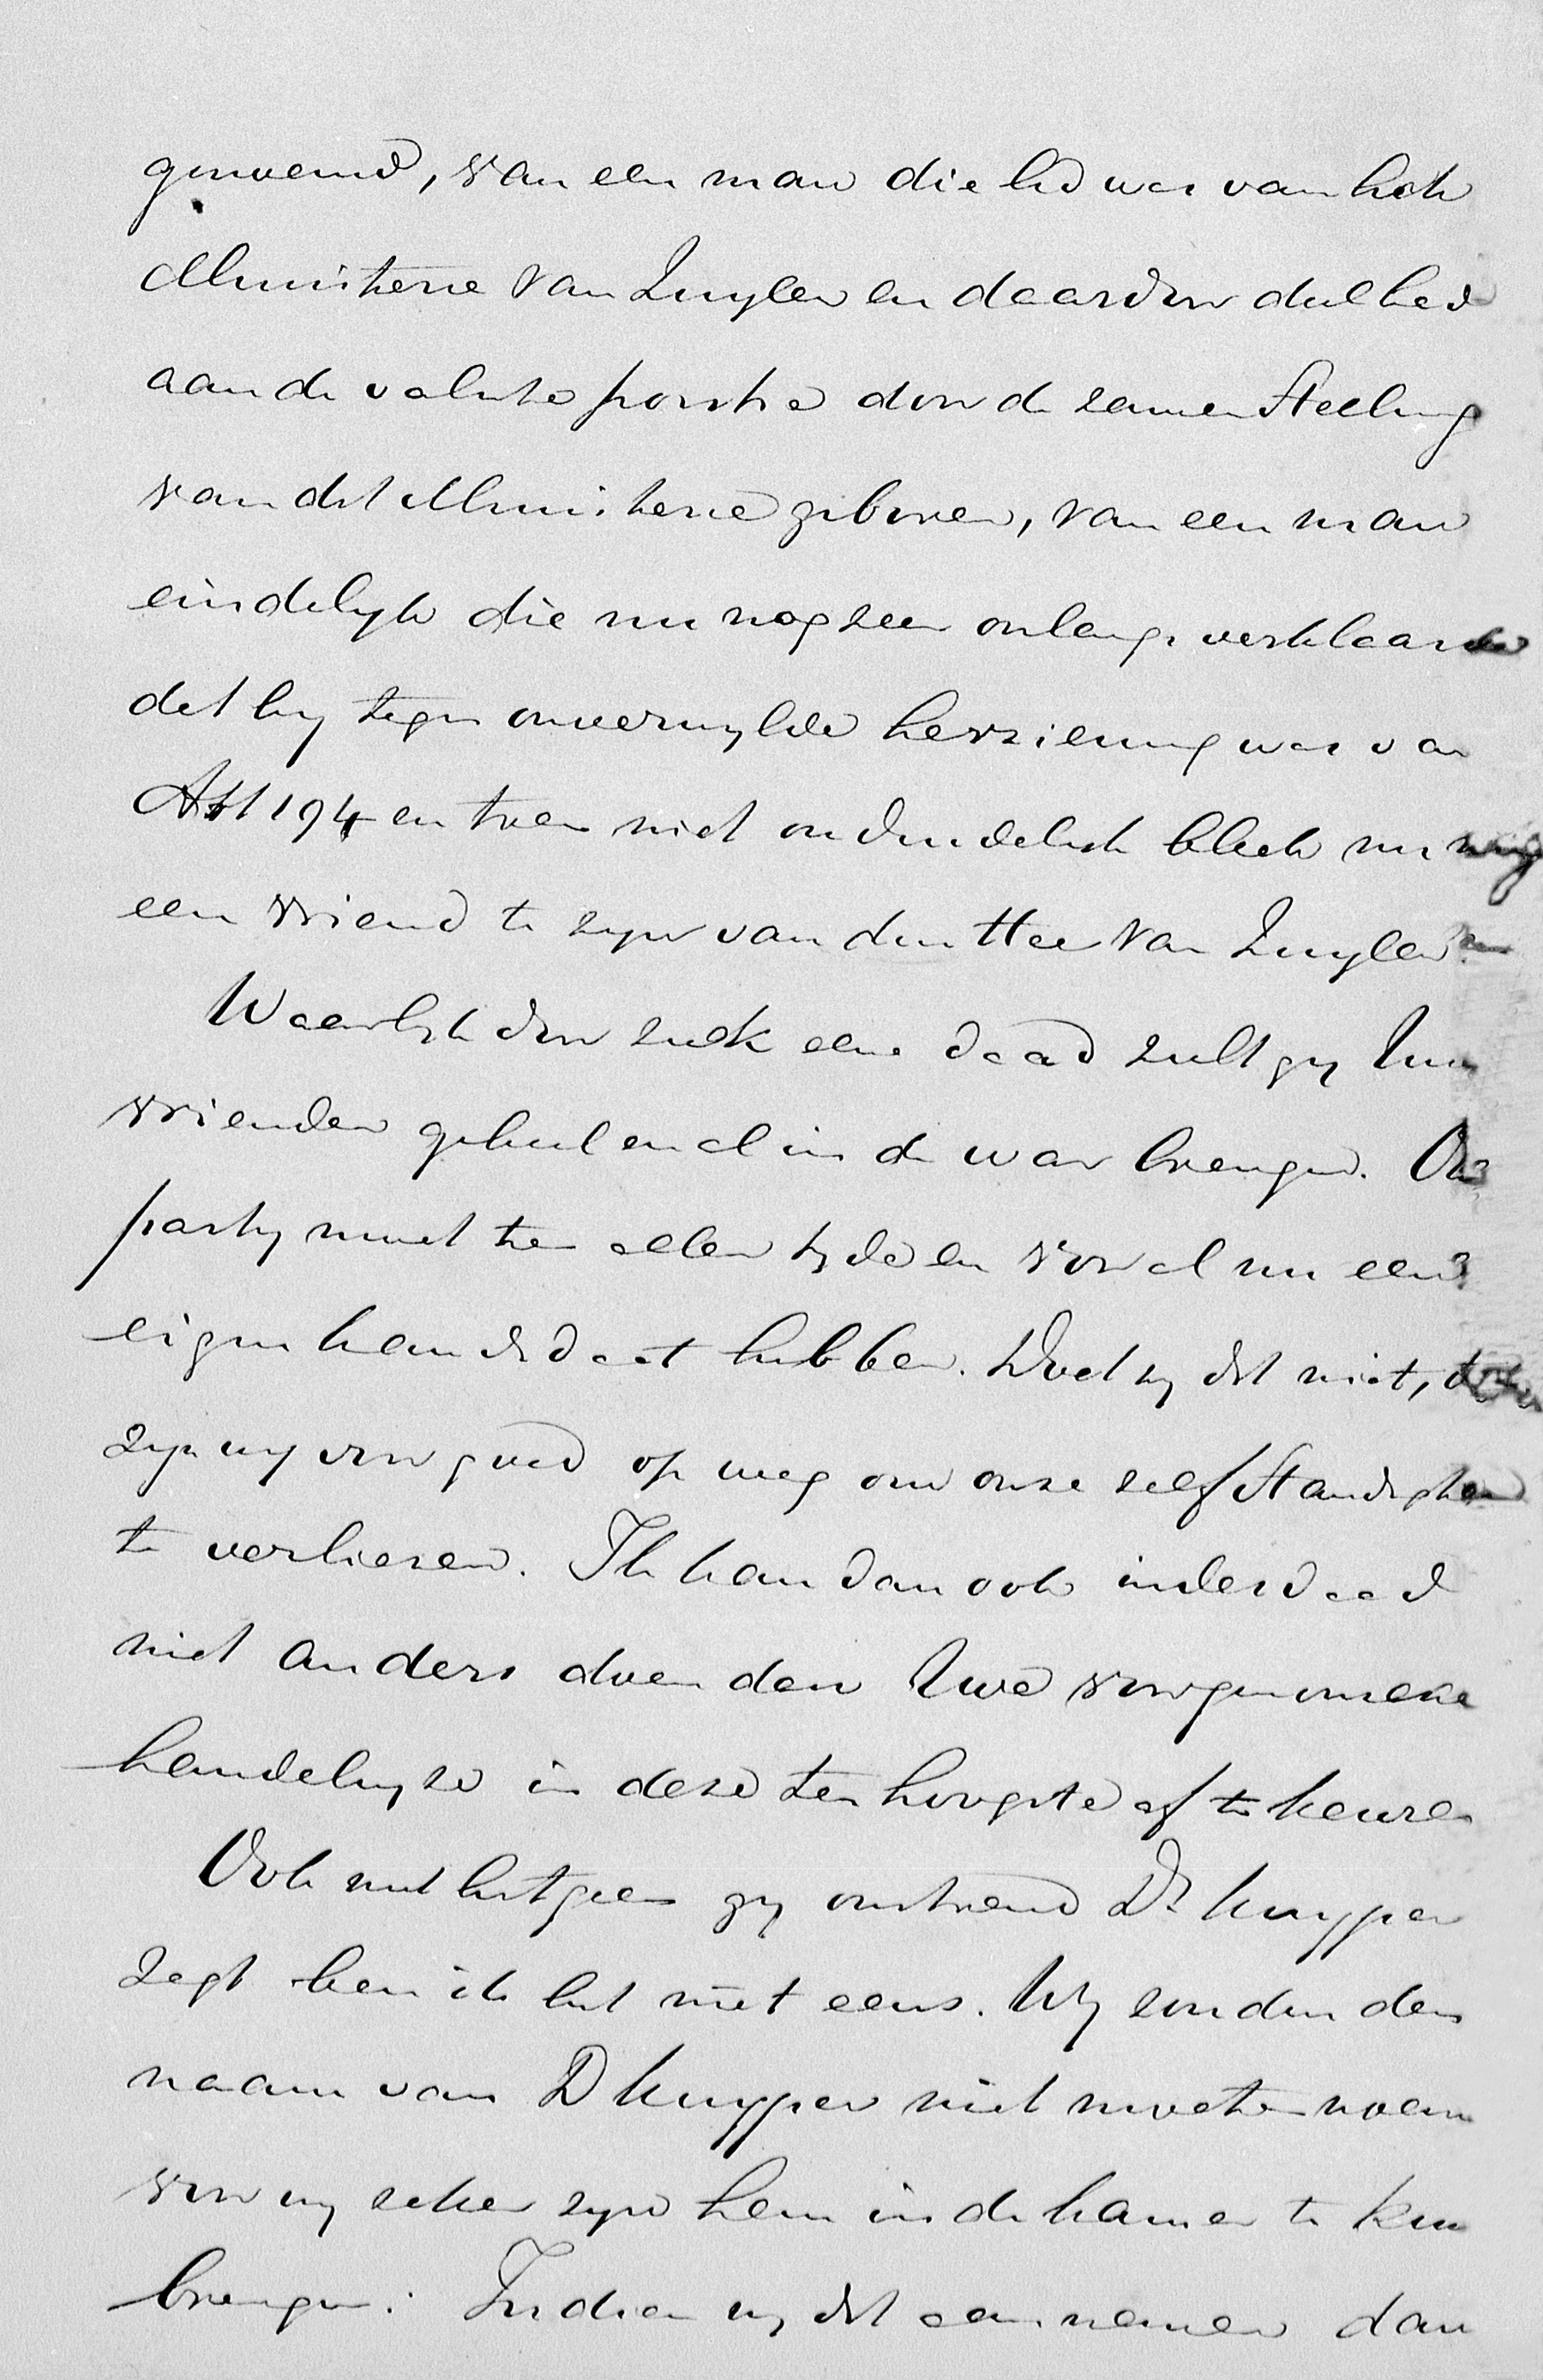 genoemd, van een man die lid was van het
Ministerie van Zuylen en daardoor deel had
aan de valsche positie door de zamenstelling
van dat Ministerie geboren, van een man
eindelyk die nu nog zeer onlangs verklaarde
dat hy tegen onverwylde herziening was van
Art 194 en toen niet onduidelyk bleek nu nog
een vriend te zyn van den Heer van Zuylen.
Waarlyk door zulk eene daad zult gy Uw
vrienden geheel en al in de war brengen. Onze
party moet ten allen tyde en vooral nu een
eigen kandidaat hebben. Doet zy dat niet, dan
zyn wy voor goed op weg om onze zelfstandigheid
te verliezen. Ik kan dan ook inderdaad
niet anders doen dan Uwe voorgenomene
handelwyze in deze ten hoogste af te keuren
Ook met hetgeen gy omtrent Dr Kuyper
zegt ben ik het niet eens. Wy zouden den
naam van D Kuyper niet moeten noem
voor wy zeker zyn hem in de kamer te kun
brengen. Indien wy dat aannemen dan